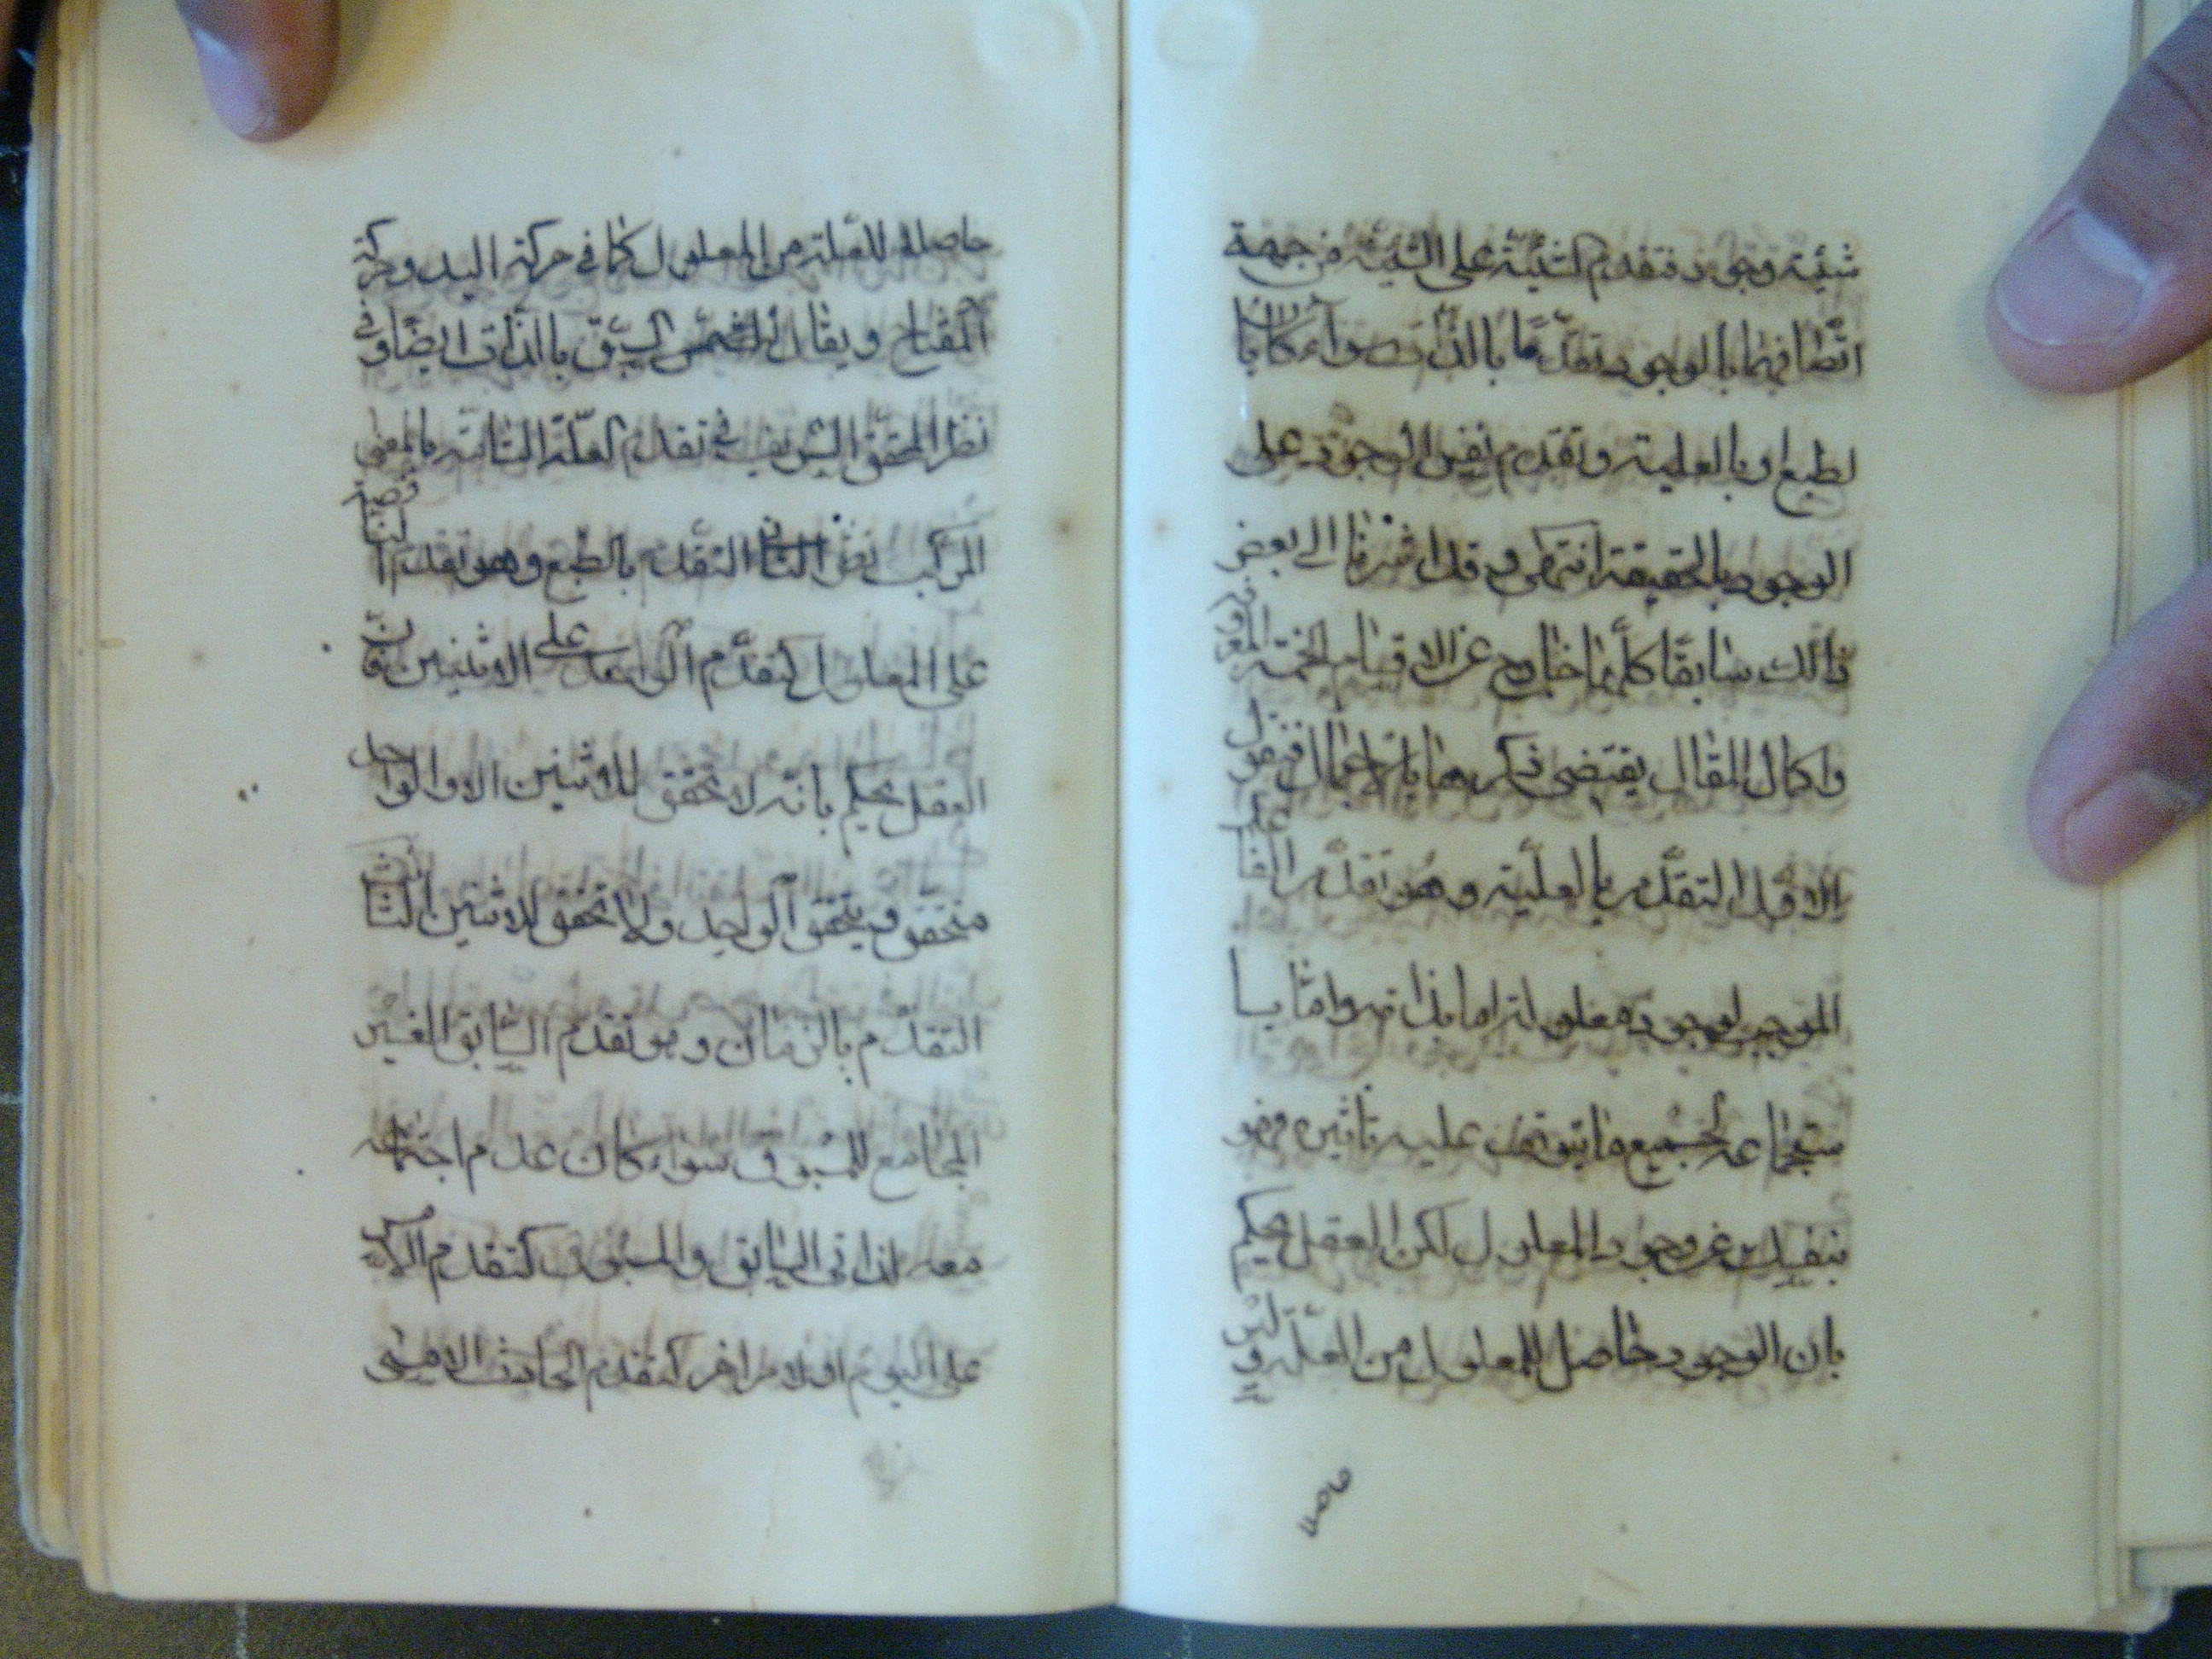 شيئية وجود وتقدم كشيئية على الشيئية من جهة
اتصافهما بالوجود تقدما بالذات سواء كان با
لطبع او بالعلية وتقدم نفس الوجود على
الوجود بالحقيقة انتهى وقد اشرنا الى بعض
ذالك سابقا كلها خارج عن الاقسام الخمسة
واكمال المقال يقتضى ذكرها بالاجمال
الاول التقدم بالعلية وهو تقدم الفاعل
الموجب لوجود معلوله اما بذاته واما با
ستجماعه لجميع ما يتوقف عليه تاثيره فهو
ينفك عن وجود المعلول لكن العقل يحكم
بان الوجود حاصل للمعلول من العلة وليس
حاصلا للعلة من المعلول كما فى حركة اليد وحركة
المفتاح ويقال لهذا السبق بالذات ايضا وفى
نظر المحقق الشريف فى تقدم العلة التامة بالمعنى
المركب نظر الثانى التقدم بالطبع وهو تقدم
على المعلول كتقدم الواحد على الاثنين فان
العقل يحكم بانه لا تحقق للاثنين الا والواحد
متحقق ويتحقق الواحد ولا تحقق للاثنين الثالث
التقدم بالزمان وهو تقدم السابق الغير
المجامع للمسبوق سواء كان عدم اجتماعه
معه لذاتى السابق والمسبوق كتقدم الامس
على اليوم او لامر اخر كتقدم الحادث الامسى